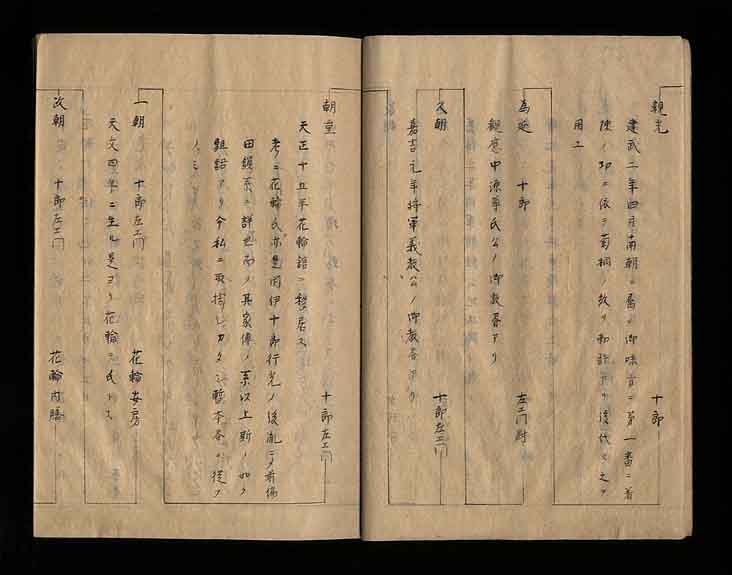 親光 十郎
建武二年四月南朝ニ属シ御味方ニ第一番ニ着
陣ノ功ニ依テ菊桐ノ紋ヲ 後代マテ之ヲ
用工
為 十郎 左エ門尉
観應中源尊氏公ノ御教書アリ
久朝 十郎左エ門
嘉吉元年将軍義教公ノ御教書アリ
朝重 十郎左エ門
天正十五年花輪 ニ移居ス
考ニ花輪氏亦是閉伊十郎行光ノ後胤ニメ
田鎖系ニ詳也 其家傳ノ系以上斯ノ如ク
アリ今私ニ取捨シカタシ暫本 ニ従フ
ノミ
一朝 十郎左エ門 花輪安房
天文四年ニ生ル是ヨリ花輪ヲ氏トス
政朝 十郎左エ門 花輪内膳